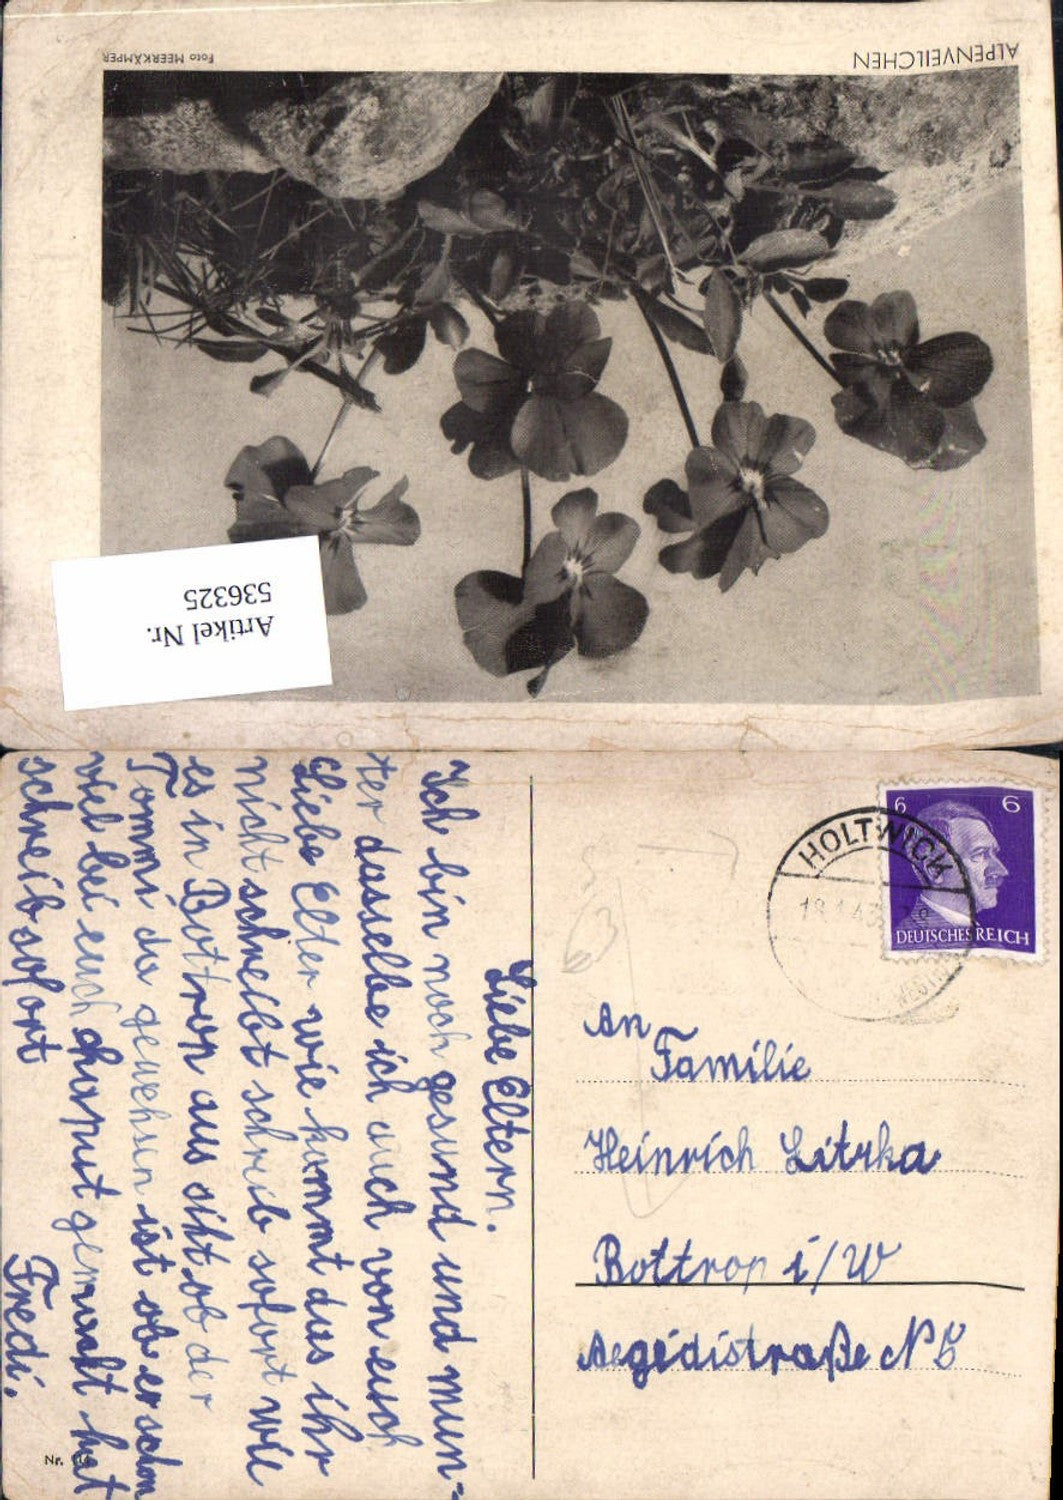 ALPENVEILCHEN
Foto MEERKÄMPER
Artikel Nr.
536325
Liebe Eltern.
Ich bin noch gesund und mun-
ter dasselbe ich auch von euch
Liebe Elter wie kommt das ihr
nicht schreibt schrib sofort wie
es in Bottrop aus siht ob der
Tommi da gewehsen ist ob er schon
viel bei euch kaput gemacht hat
schreib sofort
Fredi.
Nr.
6 6
DEUTSCHES REICH
HOLTWICK
An
Familie
Heinrich Litzka
Bottrop i/W
Aegidistraße N 5